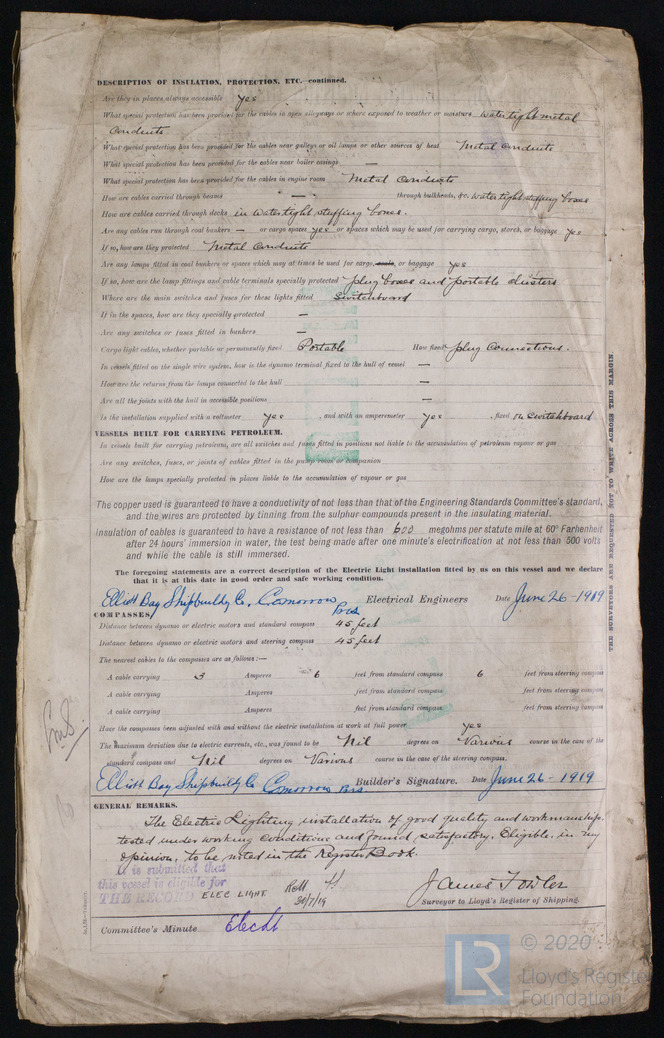 DESCRIPTION OF INSULATION, PROTECTION, ETC.—continued.
Are they in places always accessible yes
What special protection has been provided for the cables in open alleyways or where exposed to weather or moisture Watertight metal
Conduits
What special protection has been provided for the cables near galleys or oil lamps or other sources of heat Metal conduits
What special protection has been provided for the cables near boiler casings —
What special protection has been provided for the cables in engine room Metal Conduits
How are cables carried through beams — through bulkheads, &c. Watertight stuffing boxes
How are cables carried through decks in watertight stuffing boxes.
Are any cables run through coal bunkers — or cargo spaces yes or spaces which may be used for carrying cargo, stores, or baggage yes
If so, how are they protected Metal Conduits
Are any lamps fitted in coal bunkers or spaces which may at times be used for cargo, coals, or baggage yes
If so, how are the lamp fittings and cable terminals specially protected plug boxes and portable clusters
Where are the main switches and fuses for these lights fitted Switchboard
If in the spaces, how are they specially protected —
Are any switches or fuses fitted in bunkers —
Cargo light cables, whether portable or permanently fixed Portable How fixed plug Connections.
In vessels fitted on the single wire system, how is the dynamo terminal fixed to the hull of vessel —
How are the returns from the lamps connected to the hull —
Are all the joints with the hull in accessible positions —
Is the installation supplied with a voltmeter yes , and with an amperemeter yes , fixed on Switchboard
VESSELS BUILT FOR CARRYING PETROLEUM.
In vessels built for carrying petroleum, are all switches and fuses fitted in positions not liable to the accumulation of petroleum vapour or gas
Are any switches, fuses, or joints of cables fitted in the pump room or companion
How are the lamps specially protected in places liable to the accumulation of vapour or gas
The copper used is guaranteed to have a conductivity of not less than that of the Engineering Standards Committee's standard,
and the wires are protected by tinning from the sulphur compounds present in the insulating material.
Insulation of cables is guaranteed to have a resistance of not less than 600 megohms per statute mile at 60° Farhenheit
after 24 hours' immersion in water, the test being made after one minute's electrification at not less than 500 volts
and while the cable is still immersed.
The foregoing statements are a correct description of the Electric Light installation fitted by us on this vessel and we declare
that it is at this date in good order and safe working condition.
Elliott Bay Shipbuildg Co. Electrical Engineers Date June 26-1919
Pres
COMPASSES.
Distance between dynamo or electric motors and standard compass 45 feet
Distance between dynamo or electric motors and steering compass 45 feet
The nearest cables to the compasses are as follows:—
A cable carrying 3 Amperes 6 feet from standard compass 6 feet from steering compass
A cable carrying Amperes feet from standard compass feet from steering compass
A cable carrying Amperes feet from standard compass feet from steering compass
Have the compasses been adjusted with and without the electric installation at work at full power yes
The maximum deviation due to electric currents, etc., was found to be Nil degrees on Various course in the case of the
standard compass and Nil degrees on Various course in the case of the steering compass.
Elliott Bay Shipbuildg Co Pres. Builder's Signature. Date June 26-1919
GENERAL REMARKS.
The Electric Lighting installation of good quality and workmanship,
tested under working conditions and found satisfactory. Eligible, in my
opinion, to be noted in the Register Book.
It is submitted that
this vessel is eligible for
THE RECORD ELEC. LIGHT
30/7/19
James Fowler
Surveyor to Lloyd's Register of Shipping.
Committee's Minute Elec Lt
THE SURVEYORS ARE REQUESTED NOT TO WRITE ACROSS THIS MARGIN.
LR © 2020
Lloyd's Register
Foundation